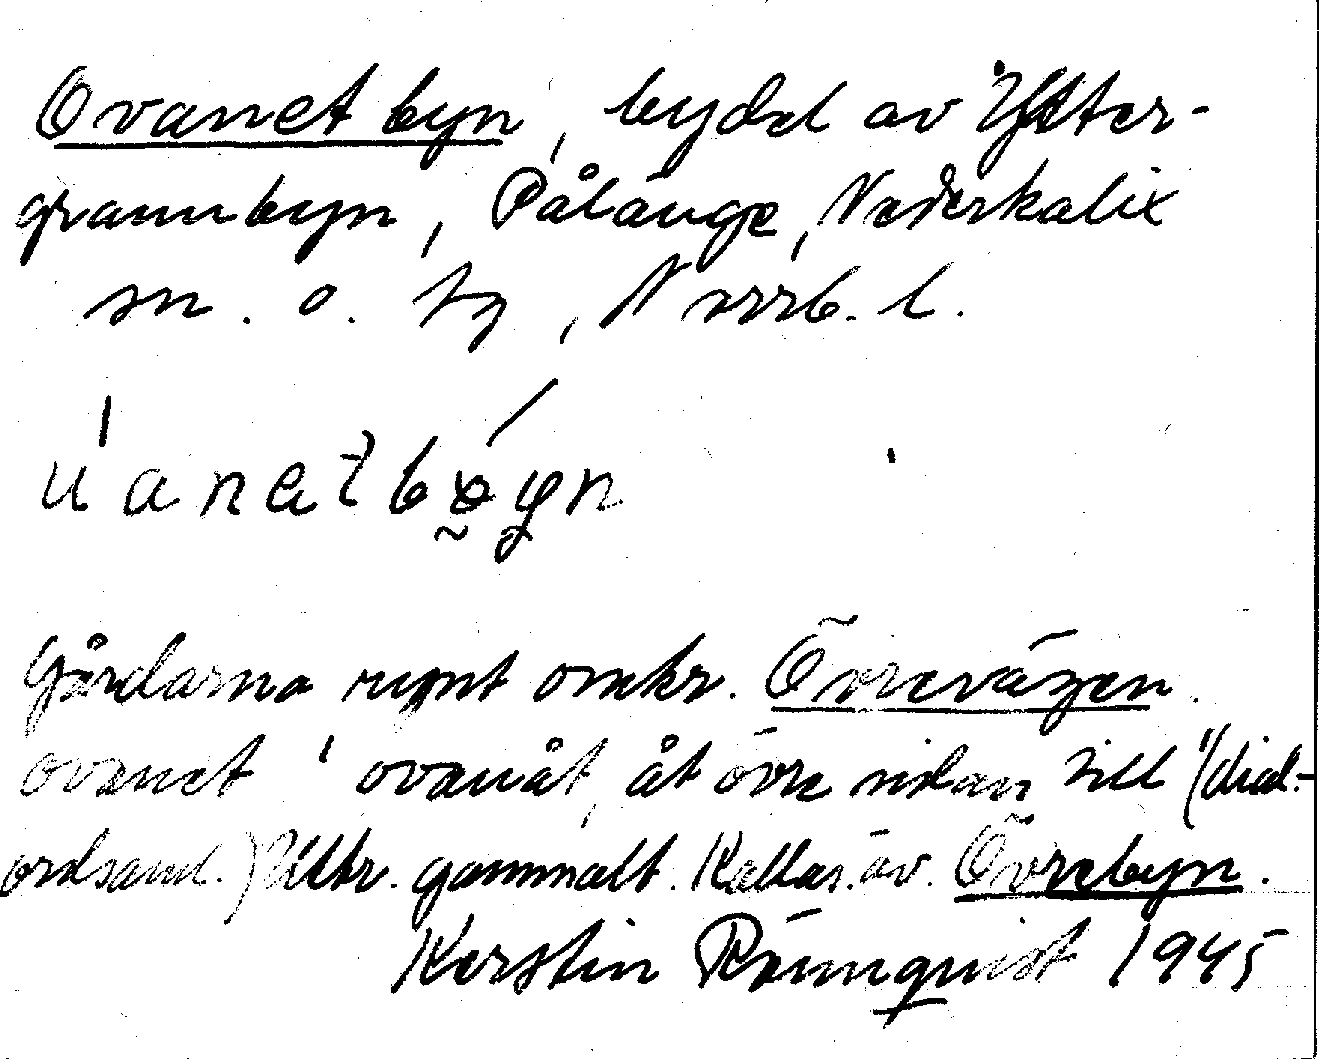 Ovanet byn, bydel av Ytter-
grannbyn, Pålänge, Nederkalix
sn. o. tg, Norrb. l.
Gårdarna runt omkr. Övrevägen.
ovanet 'ovanåt, åt övre sidan till' (dial.-
ordsaml.) Uttr. gammalt. Kallas äv. Övrebyn.
Kerstin Rönnquist 1945